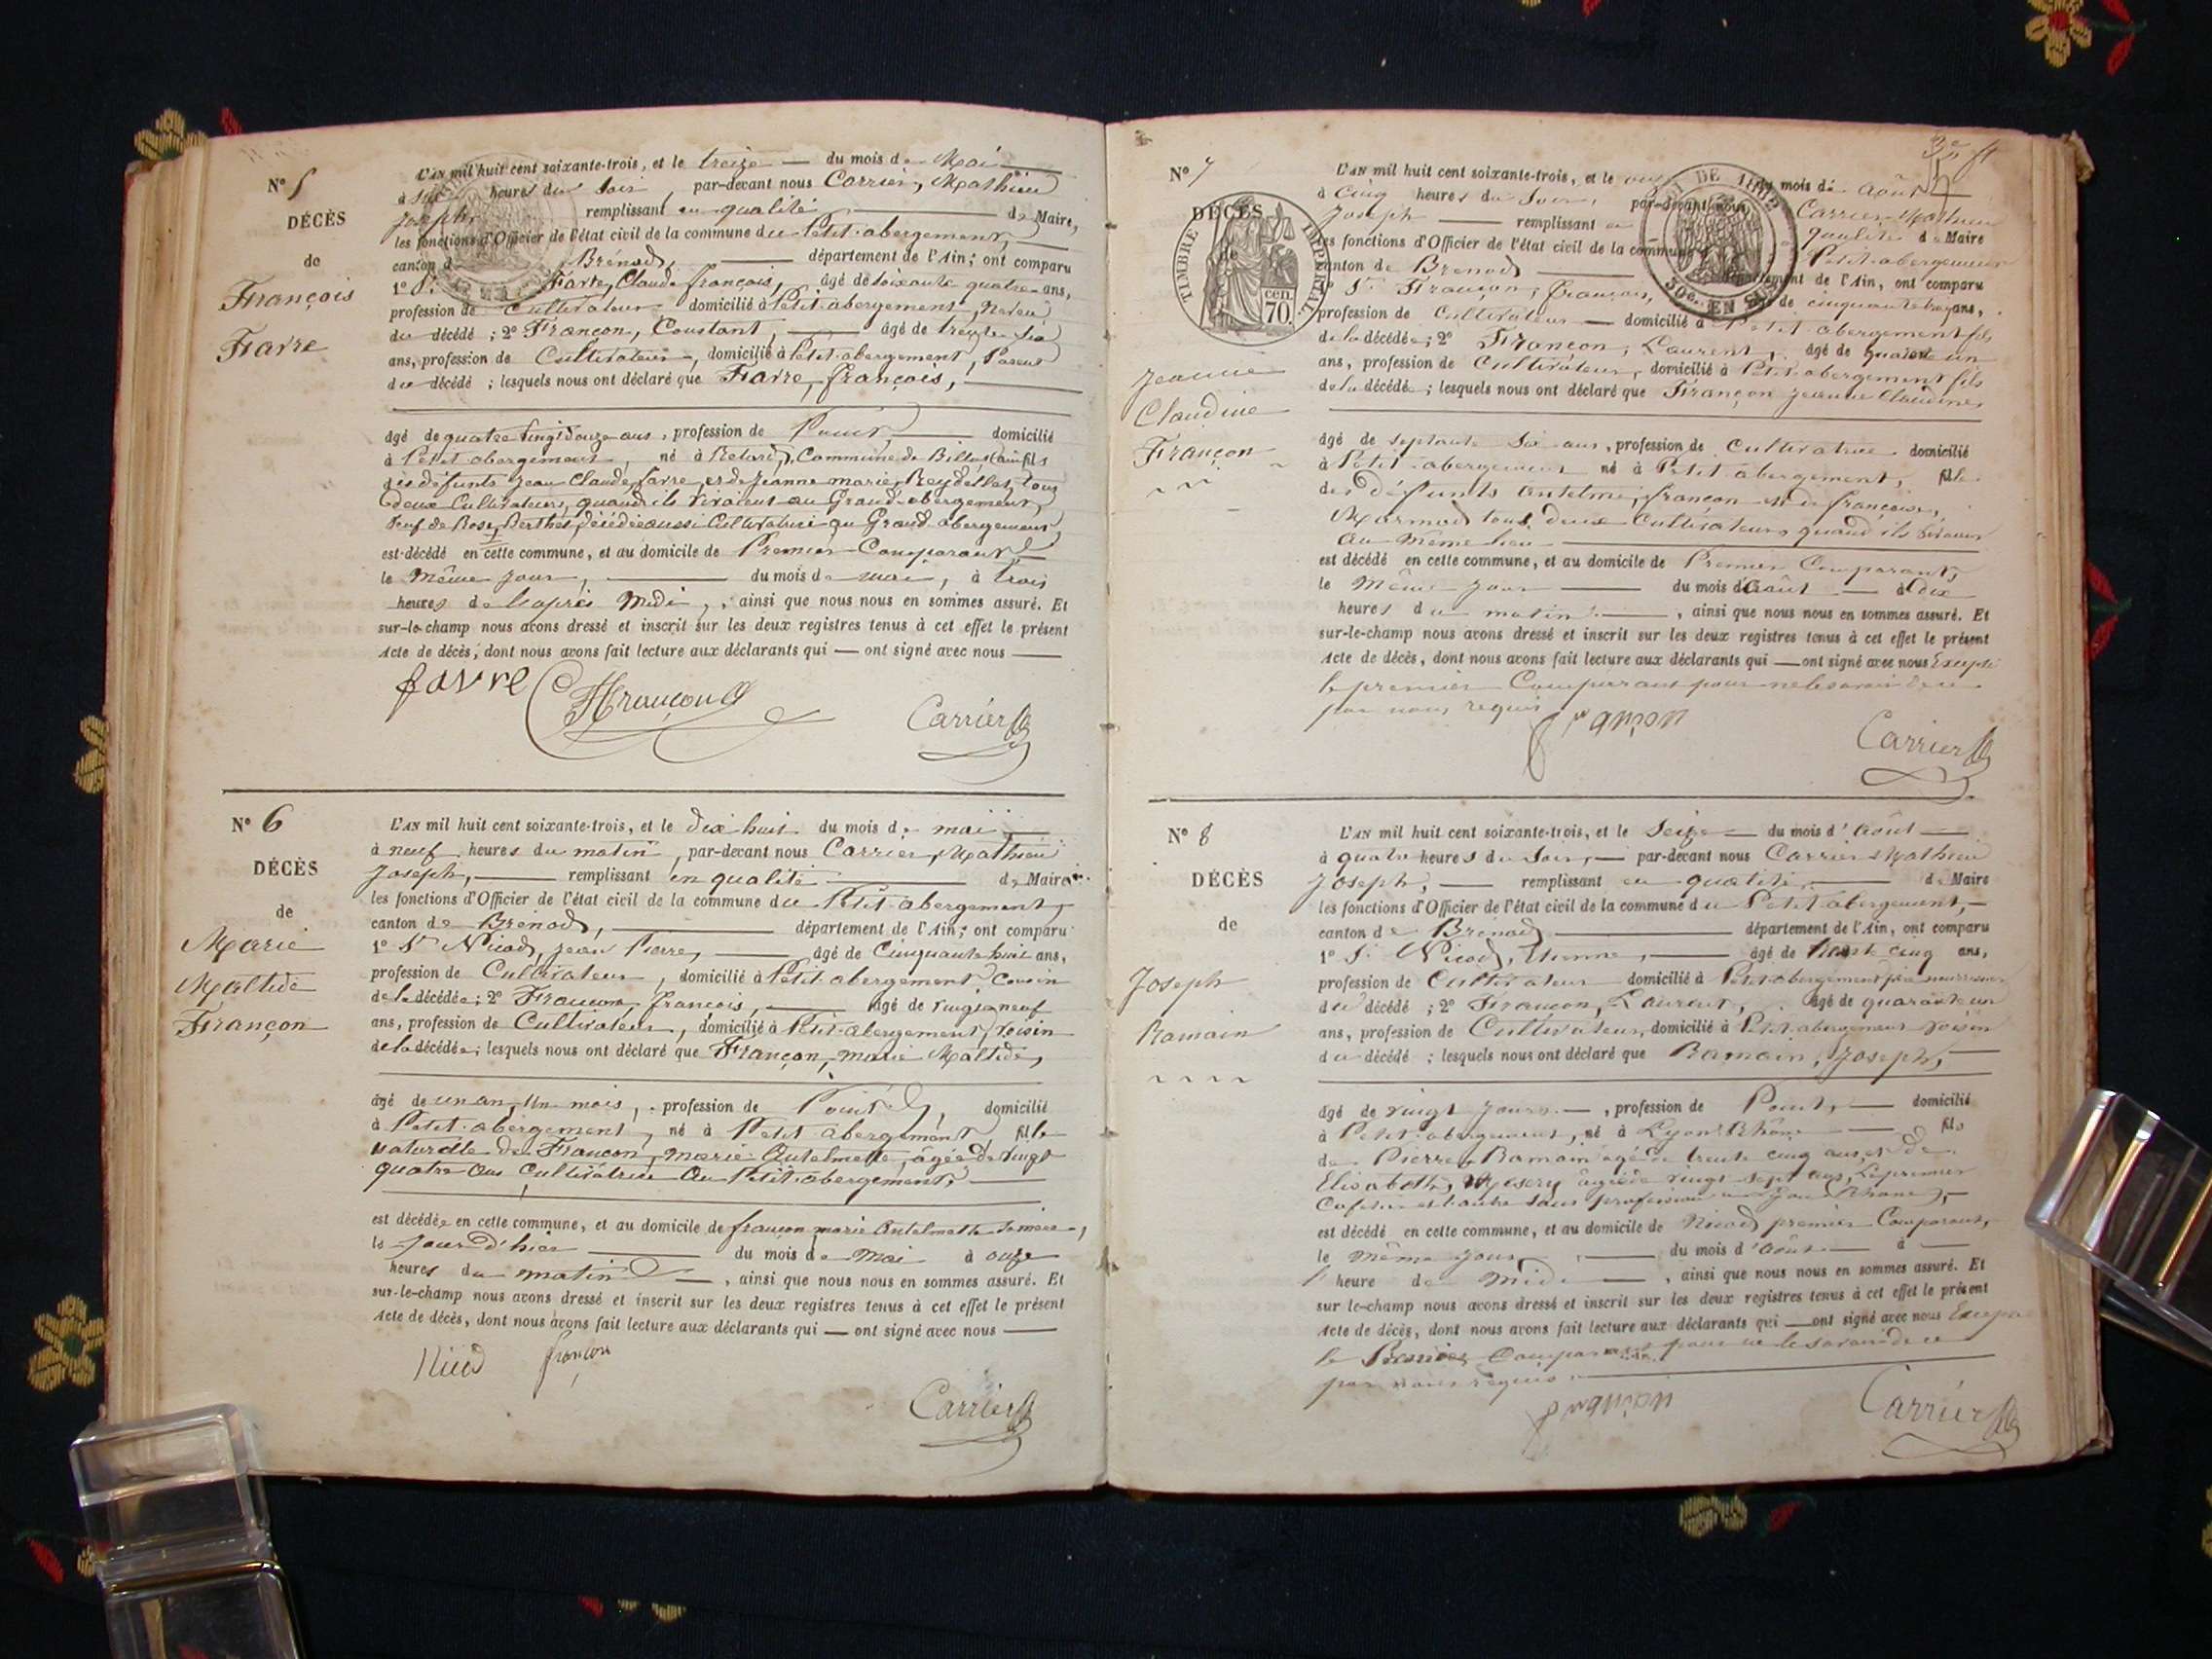 N° 5
DÉCÈS
de
François
Favre
L'AN mil huit cent soixante-trois, et le treize — du mois de Mai
à six heures du soir, par-devant nous Carrier, Mathieu
Joseph, remplissant en qualité — de Maire,
les fonctions d'Officier de l'état civil de la commune du Petit-abergement,
canton de Brénod, — département de l'Ain; ont comparu
1° Sr Favre, Claude françois, âgé de soixante quatre ans,
profession de Cultivateur — domicilié à Petit-abergement, Neveu
du décédé; 2° Françon, Constant, — âgé de trente six
ans, profession de Cultivateur, domicilié à Petit-abergement,
du décédé; lesquels nous ont déclaré que Favre, françois,
âgé de quatre vingt douze ans, profession de Point, — domicilié
à Petit abergement, né à Retord, Commune de Billiat (ain) fils
des défunts Jean Claude favre, et de Jeanne marie Reydellet, tous
deux Cultivateurs, quand ils vivaient au Grand-abergement,
veuf de Rose Berthet, décédée aussi Cultivatrice au Grand-abergement
est décédé en cette commune, et au domicile de Premier Comparant
le même jour, — du mois de mai, à trois
heures de l'après midi, ainsi que nous nous en sommes assuré. Et
sur-le-champ nous avons dressé et inscrit sur les deux registres tenus à cet effet le présent
Acte de décès, dont nous avons fait lecture aux déclarants qui — ont signé avec nous —
favre CFrançon Carrier
N° 6
DÉCÈS
de
Marie
Maltide
Françon
L'AN mil huit cent soixante-trois, et le dix huit du mois de mai
à neuf heures du matin, par-devant nous Carrier, Mathieu
Joseph, — remplissant en qualité — de Maire
les fonctions d'Officier de l'état civil de la commune du Petit-abergement,
canton de Brénod, — département de l'Ain; ont comparu
1° Sr Nicod, jean Pierre, — âgé de Cinquante huit ans,
profession de Cultivateur, domicilié à Petit-abergement Cousin
de la décédée; 2° Françon, françois, — âgé de vingt neuf
ans, profession de Cultivateur, domicilié à Petit-abergement, voisin
de la décédée; lesquels nous ont déclaré que Françon, marie Maltide,
âgé de un an, un mois, profession de Point, domicilié
à Petit-abergement, né à Petit abergement fille
naturelle de Françon, marie Antelmette, âgée de vingt
quatre ans Cultivatrice au Petit-abergement,
est décédée en cette commune, et au domicile de françon marie Antelmette sa mère,
le jour d'hier — du mois de mai à onze
heures du matin —, ainsi que nous nous en sommes assuré. Et
sur-le-champ nous avons dressé et inscrit sur les deux registres tenus à cet effet le présent
Acte de décès, dont nous avons fait lecture aux déclarants qui — ont signé avec nous —
Nicod françon
Carrier
N° 7
DÉCÈS
de
Jeanne
Claudine
Françon
TIMBRE IMPÉRIAL
cen. 70.
L'AN mil huit cent soixante-trois, et le du mois de Août
à Cinq heures du Soir, par-devant nous Carrier Mathieu
Joseph — remplissant en qualité de Maire
les fonctions d'Officier de l'état civil de la commune Petit-abergement
canton de Brenod — département de l'Ain, ont comparu
1° Sr Françon, françois, âgé de cinquante ans,
profession de Cultivateur — domicilié à Petit abergement fils
de la décédée; 2° Françon, Laurent, âgé de quarante un
ans, profession de Cultivateur, domicilié à Petit-abergement fils
de la décédée; lesquels nous ont déclaré que Françon Jeanne Claudine,
âgé de septante six ans, profession de Cultivatrice domicilié
à Petit-abergement né à Petit abergement, fille
des défunts Antelme, françon et de françoise,
Marmod tous deux Cultivateurs quand ils vivaient
au même lieu
est décédé en cette commune, et au domicile de Premier Comparant,
le même jour — du mois d'Août — à dix
heures du matin —, ainsi que nous nous en sommes assuré. Et
sur-le-champ nous avons dressé et inscrit sur les deux registres tenus à cet effet le présent
Acte de décès, dont nous avons fait lecture aux déclarants qui — ont signé avec nous Excepté
le premier Comparant pour ne le savoir de ce
par nous requis
françon Carrier
N° 8
DÉCÈS
de
Joseph
Ramain
L'AN mil huit cent soixante-trois, et le Seize — du mois d'Août —
à quatre heures du Soir, — par-devant nous Carrier Mathieu
Joseph, — remplissant en qualité — de Maire
les fonctions d'Officier de l'état civil de la commune du Petit-abergement, —
canton de Brénod — département de l'Ain, ont comparu
1° Sr Nicod, Etienne, — âgé de cinq ans,
profession de Cultivateur domicilié à Petit-abergement père nourricier
du décédé; 2° Françon, Laurent, âgé de quarante un
ans, profession de Cultivateur, domicilié à Petit-abergement voisin
du décédé; lesquels nous ont déclaré que Ramain, Joseph, —
âgé de vingt jours —, profession de Point, — domicilié
à Petit-abergement, né à Lyon Rhône — fils
de Pierre Ramain âgé de trente cinq ans, et de
Elisabeth, âgée de vingt sept ans, Le premier
Cafetier et l'autre sans profession à Lyon Rhône, —
est décédé en cette commune, et au domicile de Nicod premier Comparant,
le même jour, — du mois d'Août — à —
l'heure de Midi —, ainsi que nous nous en sommes assuré. Et
sur le-champ nous avons dressé et inscrit sur les deux registres tenus à cet effet le présent
Acte de décès, dont nous avons fait lecture aux déclarants qui — ont signé avec nous Excepté
le Premier Comparant pour ne le savoir de ce
par nous requis.
françon Carrier